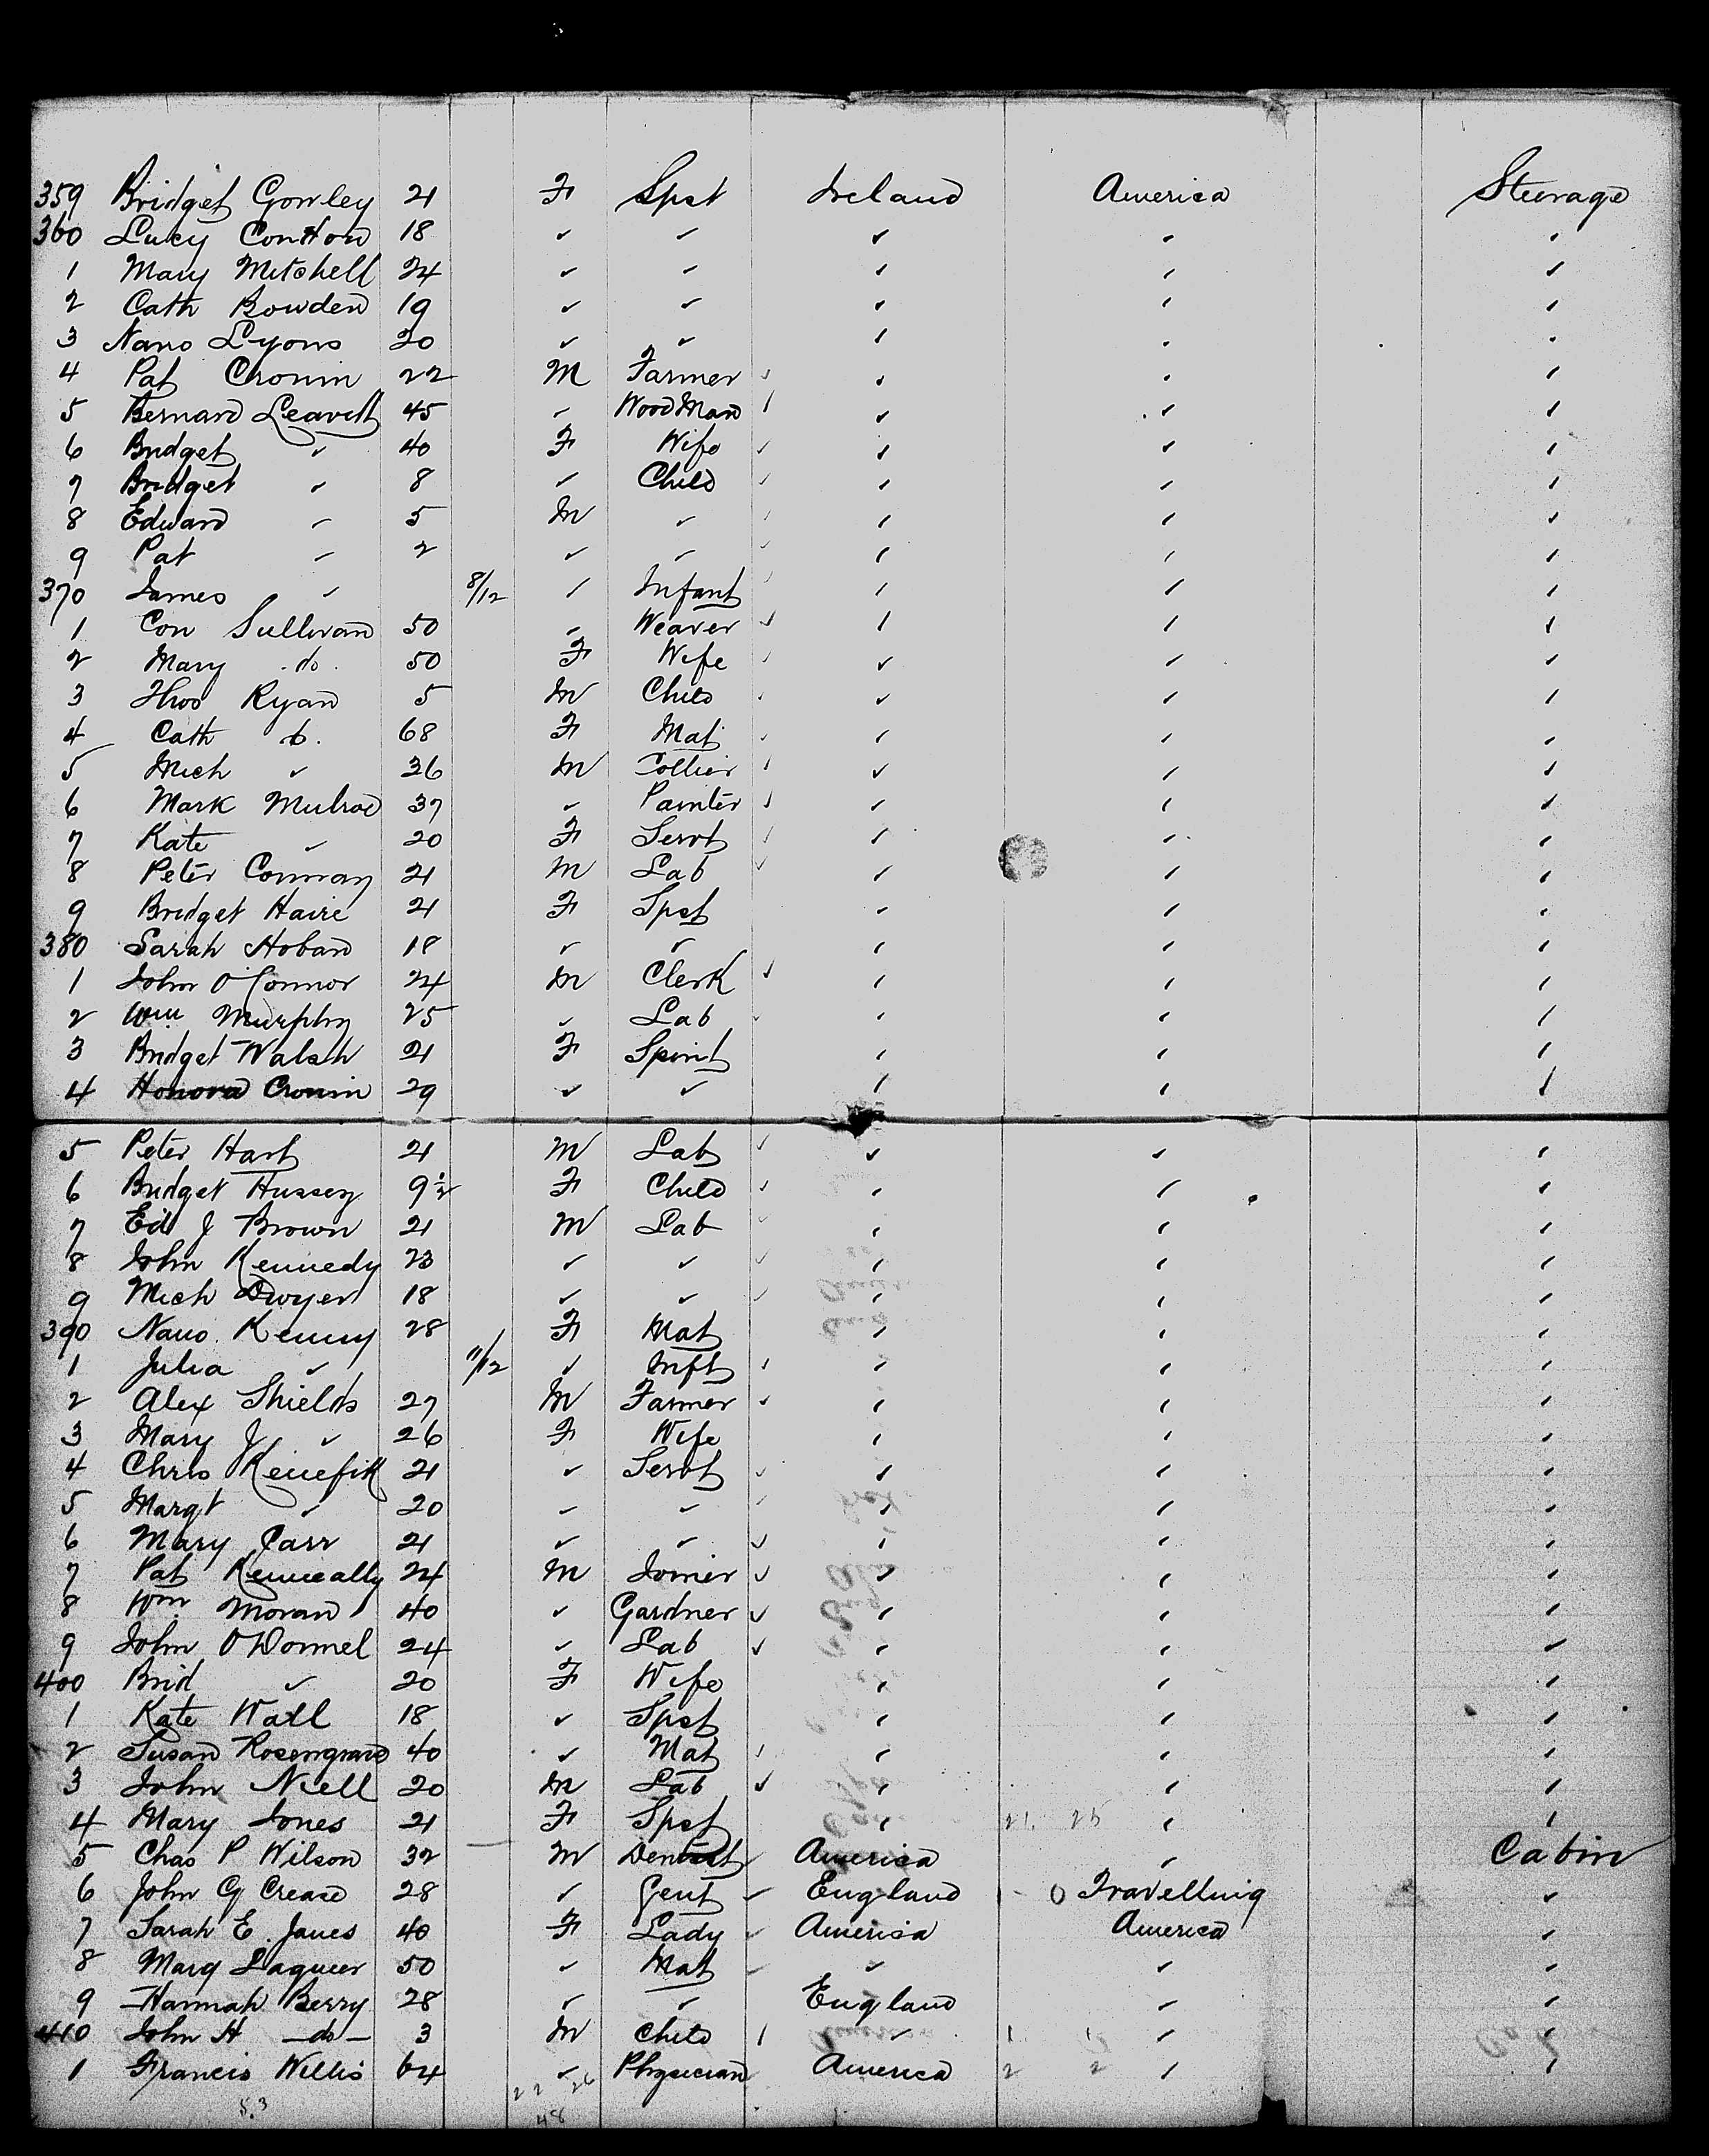 359 Bridget Gowley 21 F Spst Ireland America Steerage
360 Lucy Conton 18 " " " " "
1 Mary Mitchell 24 " " " " "
2 Cath Bowden 19 " " " " "
3 Nano Lyons 20 " " " " "
4 Pat Cronin 22 M Farmer " " "
5 Bernard Leavitt 45 " WoodMan " " "
6 Bridget " 40 F Wife " " "
7 Bridget " 8 " Child " " "
8 Edward " 5 M " " " "
9 Pat " 2 " " " " "
370 James " 8/12 " Infant " " "
1 Con Sullivan 50 " Weaver " " "
2 Mary do 50 F Wife " " "
3 Thos Ryan 5 M Child " " "
4 Cath do. 68 F Mat " " "
5 Mich " 36 M Collier " " "
6 Mark Mulroe 37 " Painter " " "
7 Kate " 20 F Servt " " "
8 Peter Conway 21 M Lab " " "
9 Bridget Haire 21 F Spst " " "
380 Sarah Hoban 18 " " " " "
1 John O'Connor 24 M Clerk " " "
2 Wm Murphy 25 " Lab " " "
3 Bridget Walsh 21 F Spinst " " "
4 Honora Cronin 29 " " " " "
5 Peter Hart 21 M Lab " " "
6 Bridget Hussey 9½ F Child " " "
7 Ed J Brown 21 M Lab " " "
8 John Kennedy 23 " " " " "
9 Mich Dwyer 18 " " " " "
390 Nano. Kenny 28 F Mat " " "
1 Julia " 11/12 " Inft " " "
2 Alex Shields 27 M Farmer " " "
3 Mary J " 26 F Wife " " "
4 Chris Kenefik 21 " Servt " " "
5 Margt " 20 " " " " "
6 Mary Carr 21 " " " " "
7 Pat Kenneally 24 M Joiner " " "
8 Wm Moran 40 " Gardner " " "
9 John O'Donnel 24 " Lab " " "
400 Brid " 20 F Wife " " "
1 Kate Wall 18 " Spst " " "
2 Susan Rosengrave 40 " Mat " " "
3 John Niell 20 M Lab " " "
4 Mary Jones 21 F Spst " 21. 25 " "
5 Chas P Wilson 32 M Dentist America " Cabin
6 John G Crease 28 " Gent England Travelling "
7 Sarah E. Janes 40 F Lady America America "
8 Marg Laqueer 50 " Mat " " "
9 Hannah Berry 28 " " England " "
410 John H do 3 M Child " " "
1 Francis Willis 64 " Physician America 2 2 " "
22 26
48